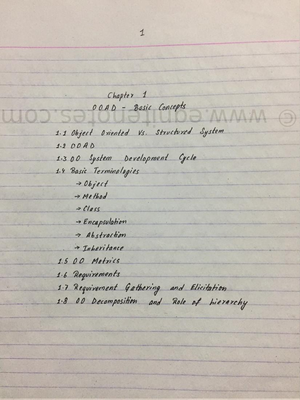 1
Chapter 1
OOAD - Basic Concepts
www.egnitenotes.com
1.1 Object Oriented Vs. Structured System
1.2 OOAD
1.3 OO System Development Cycle
1.4 Basic Terminologies
→ Object
→ Method
→ Class
→ Encapsulation
→ Abstraction
→ Inheritance
1.5 OO Metrics
1.6 Requirements
1.7 Requirement Gathering and Elicitation
1.8 OO Decomposition and Role of hierarchy